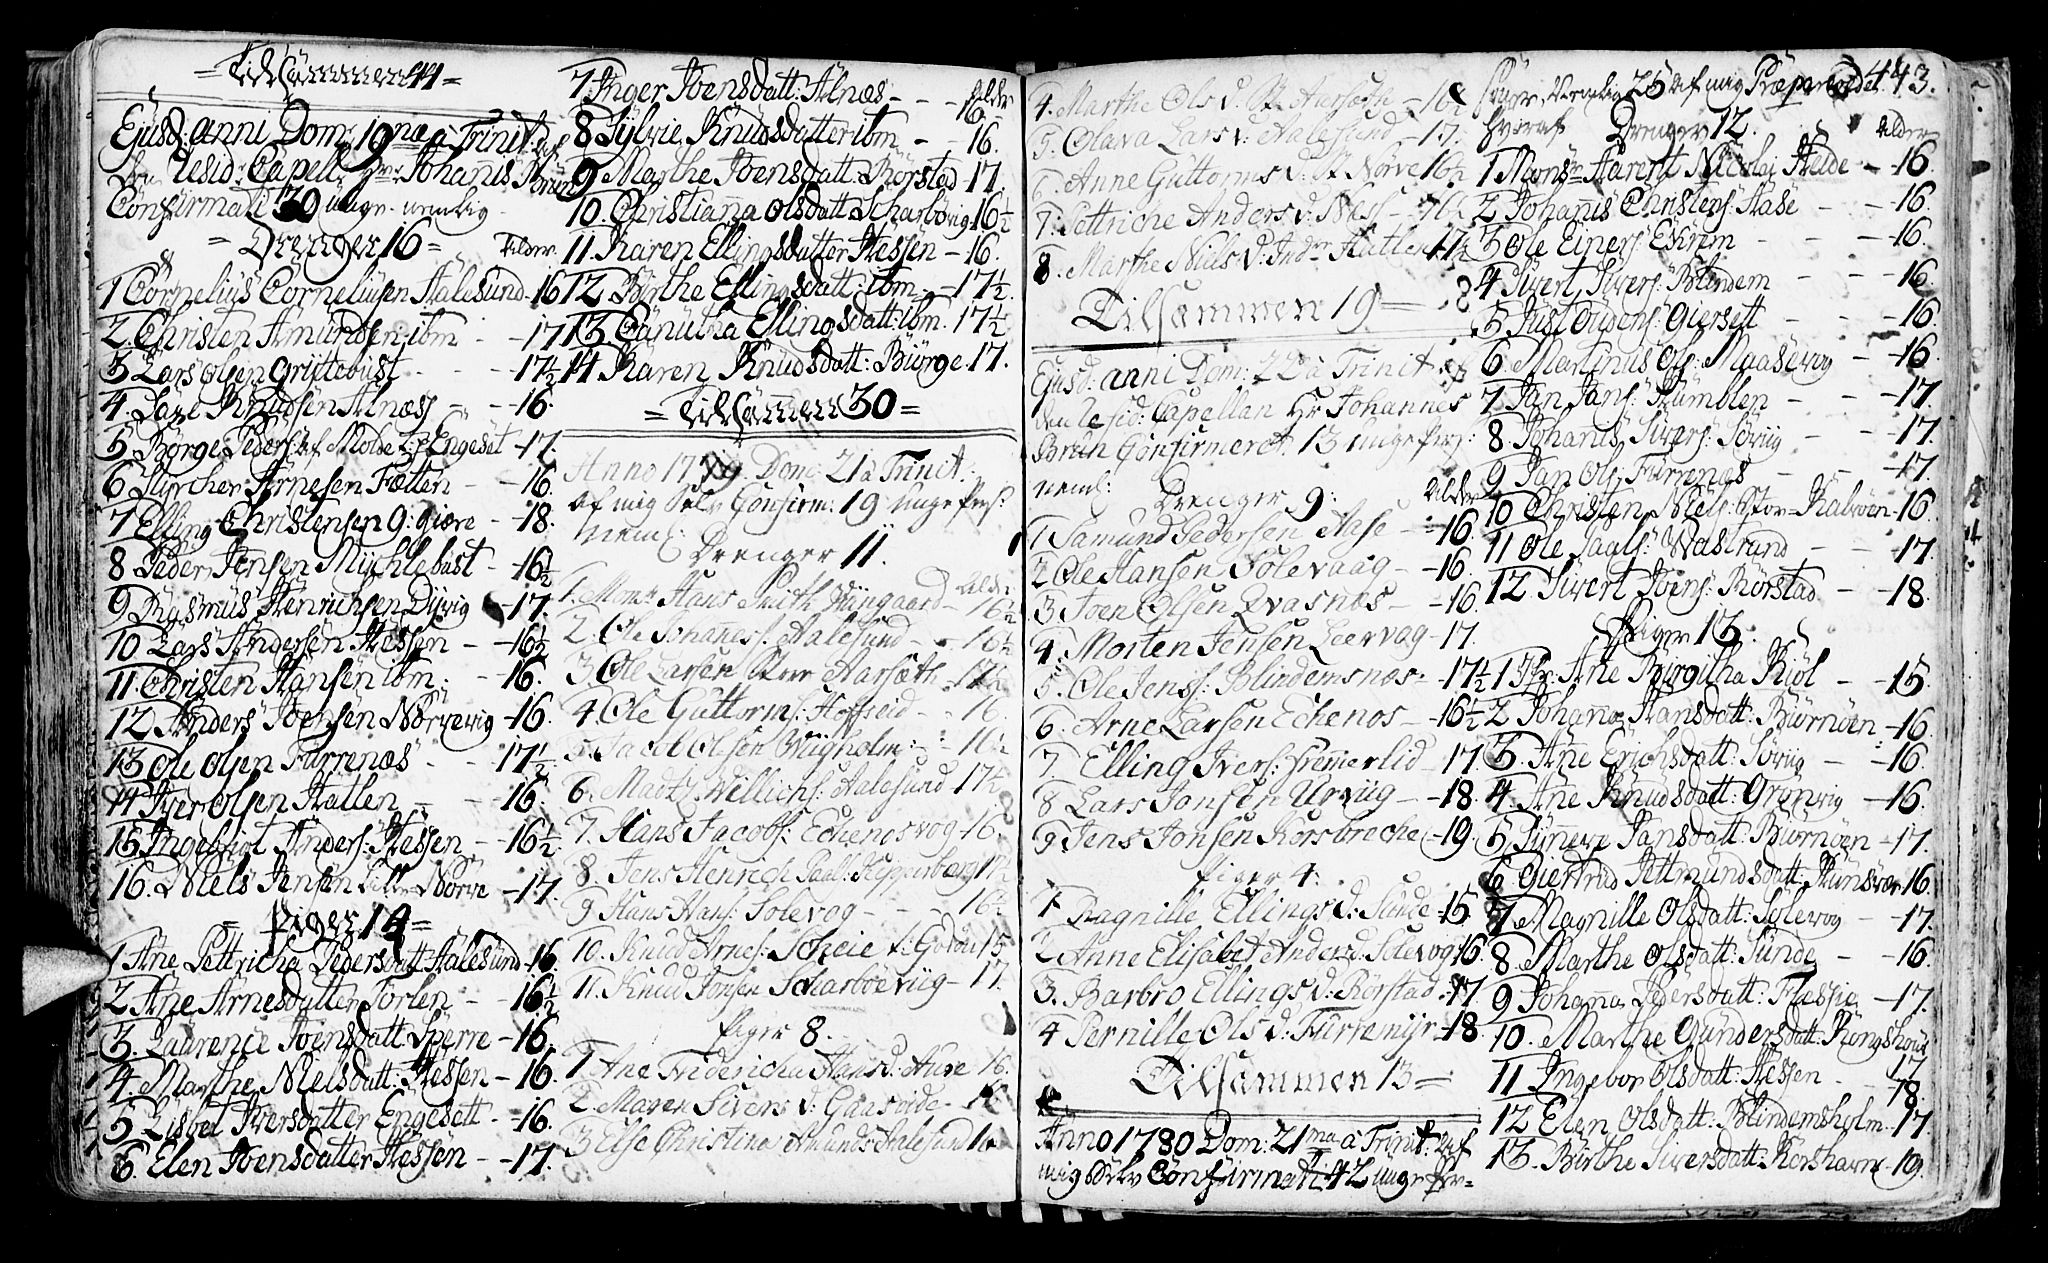 = Tilsammen 44 =
Ejusd: anni Dom: 19næ à Trinit: af
Resid: Capell: Hr Johannis Brun
Confirmati 30 unge nemlig
= Drenger 16 = Alder
1 Cornelius Corneliusen Aalesund - 16
2. Christen Amundsen ibm - 17
3 Lars Olsen Gryttebust - 17½
4. Knudsen Alnæss - 16.
5 Børge Peders: af Molde Engeset - 17.
6 Styrcher Arnesen Fætten - 16.
7 Elling Christensen G: Giøre - 18.
8 Peder Jensen Mychlebust - 16½
9 Rasmus Henrichsen Dyvig - 17.
10 Lars Andersen Hessen - 16½
11. Christen Hansen ibm. - 16.
12 Anders Joensen Nørvevig - 16.
13 Ole Olsen Furrenæs - 17½
14 Iver Olsen Hatlen - 16.
15 Ingebrigt Anders: Hessen - 16½
16. Niels Jensen Lille Nørve - 17.
= Piger 14 =
1 Ane Pettricha Pedersdatt: Aalesund - 16
2 Ane Arnesdatter Torlen - 16½
3. Laurence Joensdatt: Sperre - 16.
4. Marthe Nielsdatt: Hessen - 16.
5 Lisbet Iversdatter Engesett - 16.
6. Elen Joensdatter Hessen - 17.
7 Inger Joensdatt: Alnæs - Alder 16
8 Sylvie Knudsdatter ibm - 16.
9 Marthe Joensdatt: Rørstad 17.
10. Christiana Olsdatt: Scharbøvig 16½
11. Karen Ellingsdatter Hessen - 16.
12 Birthe Ellingsdatt: ibm - 17½.
13 Canutha Ellingsdatt: ibm. 17½
14 Karen Knudsdatt: Biørge 17.
= Tilsammen 30 =
Anno 1779. Dom: 21 à Trinit:
af mig Selv Confirm: 19 unge Pers:
neml: Drenger 11.
1. Monsr Hans Smith Alder 16½
2. Ole Johannes: Aalesund - 16½
3 Ole Larsen Store Aarsæth - 17½
4 Ole Guttorms: Hofseid - 16.
5. Jacob Olsen - 16½
6. Madz Willichs: Aalesund 17½
7. Hans Jacobs: Echenosvog - 16.
8 Jens Henrich Paul: Kipperberg 17½
9 Hans Hans: Solevog - 16½
10. Knud Arnes: Scheie Godøe 15
11. Knud Jonsen Scharbøeviig - 17.
Piger 8.
1 Ane Fridericha Hansd: Aure 16.
2 Maren Sivers d: Gaaseide
3 Else Christina Amunds Aalesund 16
4. Marthe Ols d: St Aarsæth - 16½
5. Olava Lars d: Aalesund - 17.
6. Anne Guttorms d: St Nørve 16½
7. Pettriche Anders d: Næss - 16½
8. Marthe Niels d: Indr Hatle 17½
Tilsammen 19 =
Ejusd: anni Dom: 22 à Trinit: af
Resid: Capellan Hr Johannes
Brun Confirmeret 13 unge Pers:
neml: Drenger 9: Alder
1 Samund Pedersen Aase - 16.
2 Ole Hansen Solevaag - 16.
3 Joen Olsen Qvasnæs - 16.
4. Morten Jensen Leervag - 17.
5. Ole Jenss: Blindemsnæs - 17½
6. Arne Larsen Echenos - 16½
7 Elling Ivers: Fremmerlid - 17.
8 Lars Jonsen Urviig - 18.
9. Jens Jonsen Korsbreche - 19.
Piger 4.
1. Ragnille Ellings d: Sunde 15
2 Anne Elisabet Anders d: Solevog 16.
3. Barbro Ellings d: Rørstad - 17.
4 Pernille Ols d: Furremyr - 18.
Tilsammen 13 =
Anno 1780 Dom: 21ma à Trinit: af
mig Selv Confirmati 42 unge Per=
443.
soner, nemlig 25 af mig Præparerede
hvoraf Drenger 12. Alder
1 Monsr Aarent Nicolaj Heide - 16.
2 Johanis Christens: Aase - 16.
3 Ole Einers: Exrem - 16.
4 Sivert Sivers: Blindem - 16.
5 Just Ouders: Giersett - 16.
6. Martinus Ols: Maasevog - 16.
7 Jan Jans: Humblen - 17.
8. Johanis Sivers: Sørviig - 17.
9 Jan Ols: Furrenæs - 17.
10 Christen Niels: Stor= Kalvøen - 16.
11 Ole Paals: Wastrand - 17.
12 Sivert Joens: Rørstad - 18.
Piger 13.
1 Jfr: Ane Birgitha Kiøl - 15.
2 Johanna Hansdatt: Biørnøen - 16.
3. Ane Erichsdatt: Sørviig - 16.
4. Ane Knudsdatt: Grønvig - 16.
5 Synneve Jansdatt: Biørnøen - 17.
6 Giertrud Pettmundsdatt: Hunsvær 16.
7 Magnille Olsdatt: Solevog - 17.
8 Marthe Olsdatt: Sunde - 16.
9 Johanna Pedersdatt: Flessie - 17.
10. Marthe Gundersdatt: Kongshoug 17
11 Ingebor Olsdatt: Hessen - 18.
12 Elen Olsdatt: Blindemsholm - 17.
13. Birthe Siversdatt: Korshavn - 19.